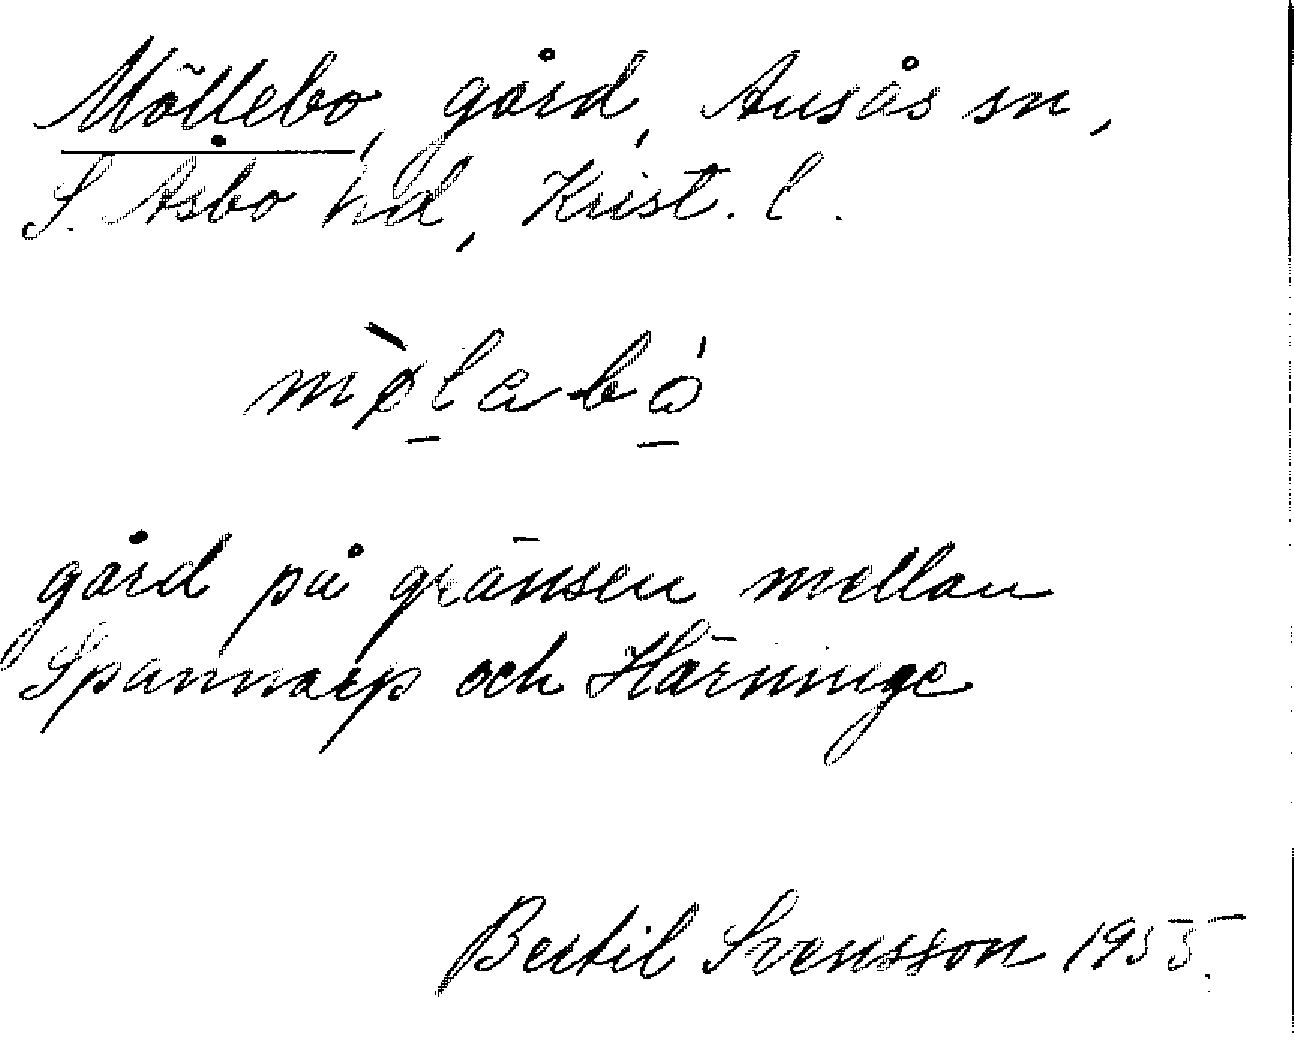 Möllebo, gård, Ausås sn,
S. Åsbo hd, Krist. l.
mø̀labó
gård på gränsen mellan
Spannarp och Härninge
Bertil Svensson 1955.